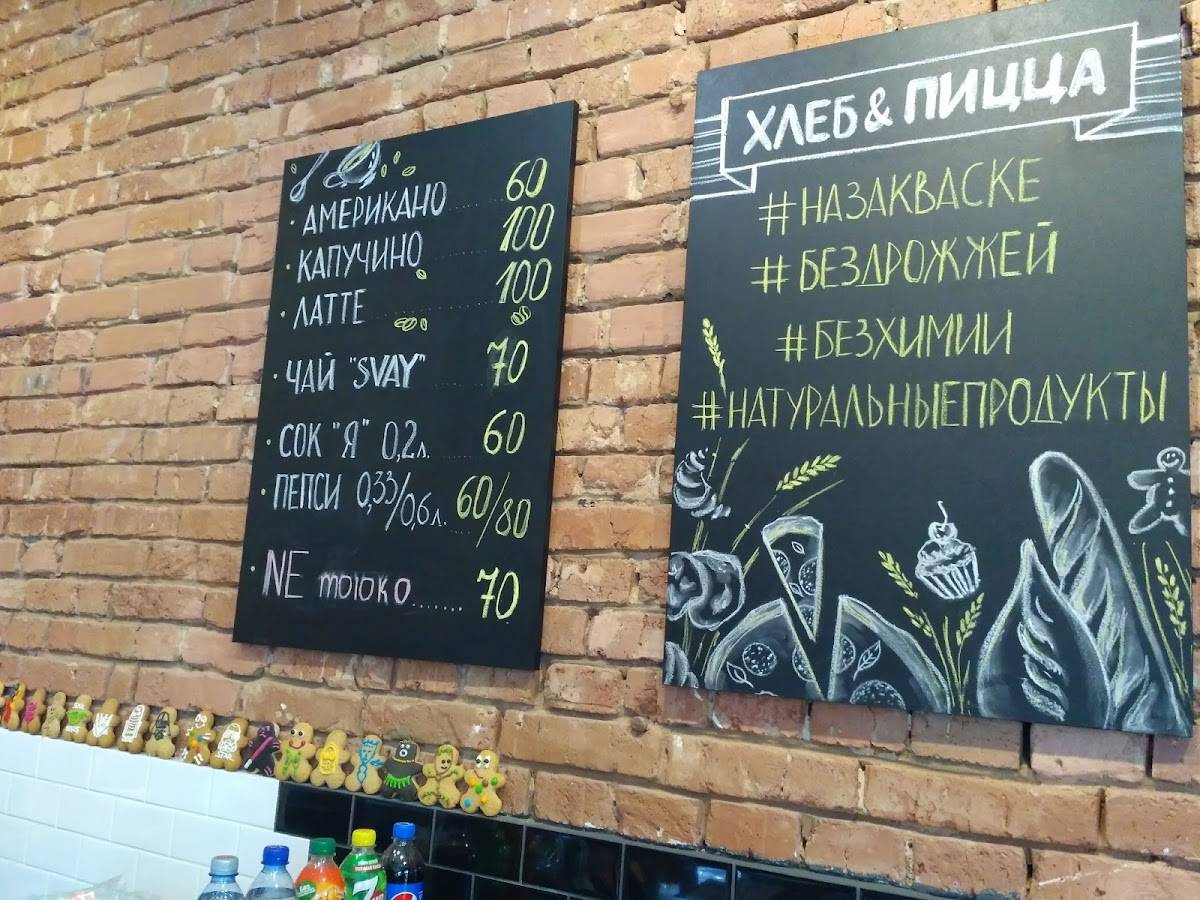 • АМЕРИКАНО ........ 60
• КАПУЧИНО ........ 100
• ЛАТТЕ ........ 100
• ЧАЙ "SVAY" ........ 70
• СОК "Я" 0,2л. ..... 60
• ПЕПСИ 0,33/0,6л. .. 60/80
• NE moloko ....... 70
ХЛЕБ & ПИЦЦА
#НАЗАКВАСКЕ
#БЕЗДРОЖЖЕЙ
#БЕЗХИМИИ
#НАТУРАЛЬНЫЕПРОДУКТЫ
7